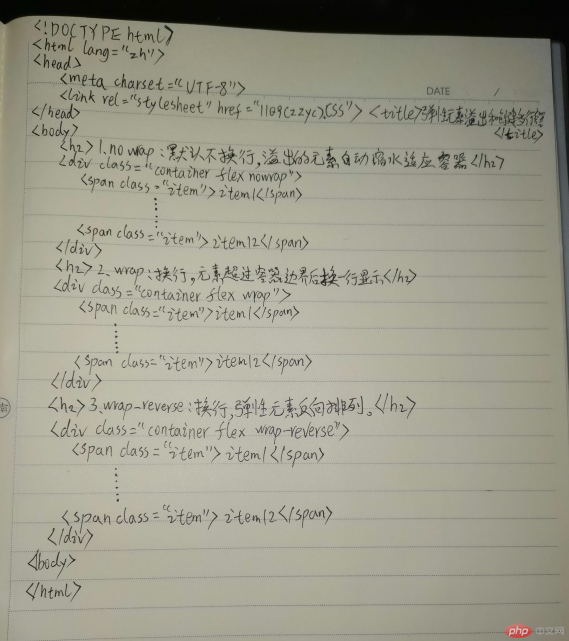 <!DOCTYPE html>
<html lang="zh">
<head>
<meta charset="UTF-8">
DATE /
<link rel="stylesheet" href="1109(zzyc).CSS"> <title>弹性元素溢出和创建多行容器
</title>
</head>
<body>
<h2>1.nowrap:默认不换行,溢出的元素自动缩水适应容器</h2>
<div class="container flex nowrap">
<span class="item">item1</span>
<span class="item">item12</span>
</div>
<h2>2.wrap:换行,元素超过容器边界后换一行显示</h2>
<div class="container flex wrap">
<span class="item">item1</span>
<span class="item">item12</span>
</div>
<h2>3.wrap-reverse:换行,弹性元素反向排列。</h2>
<div class="container flex wrap-reverse">
<span class="item">item1</span>
<span class="item">item12</span>
</div>
<body>
</html>
php 中文网